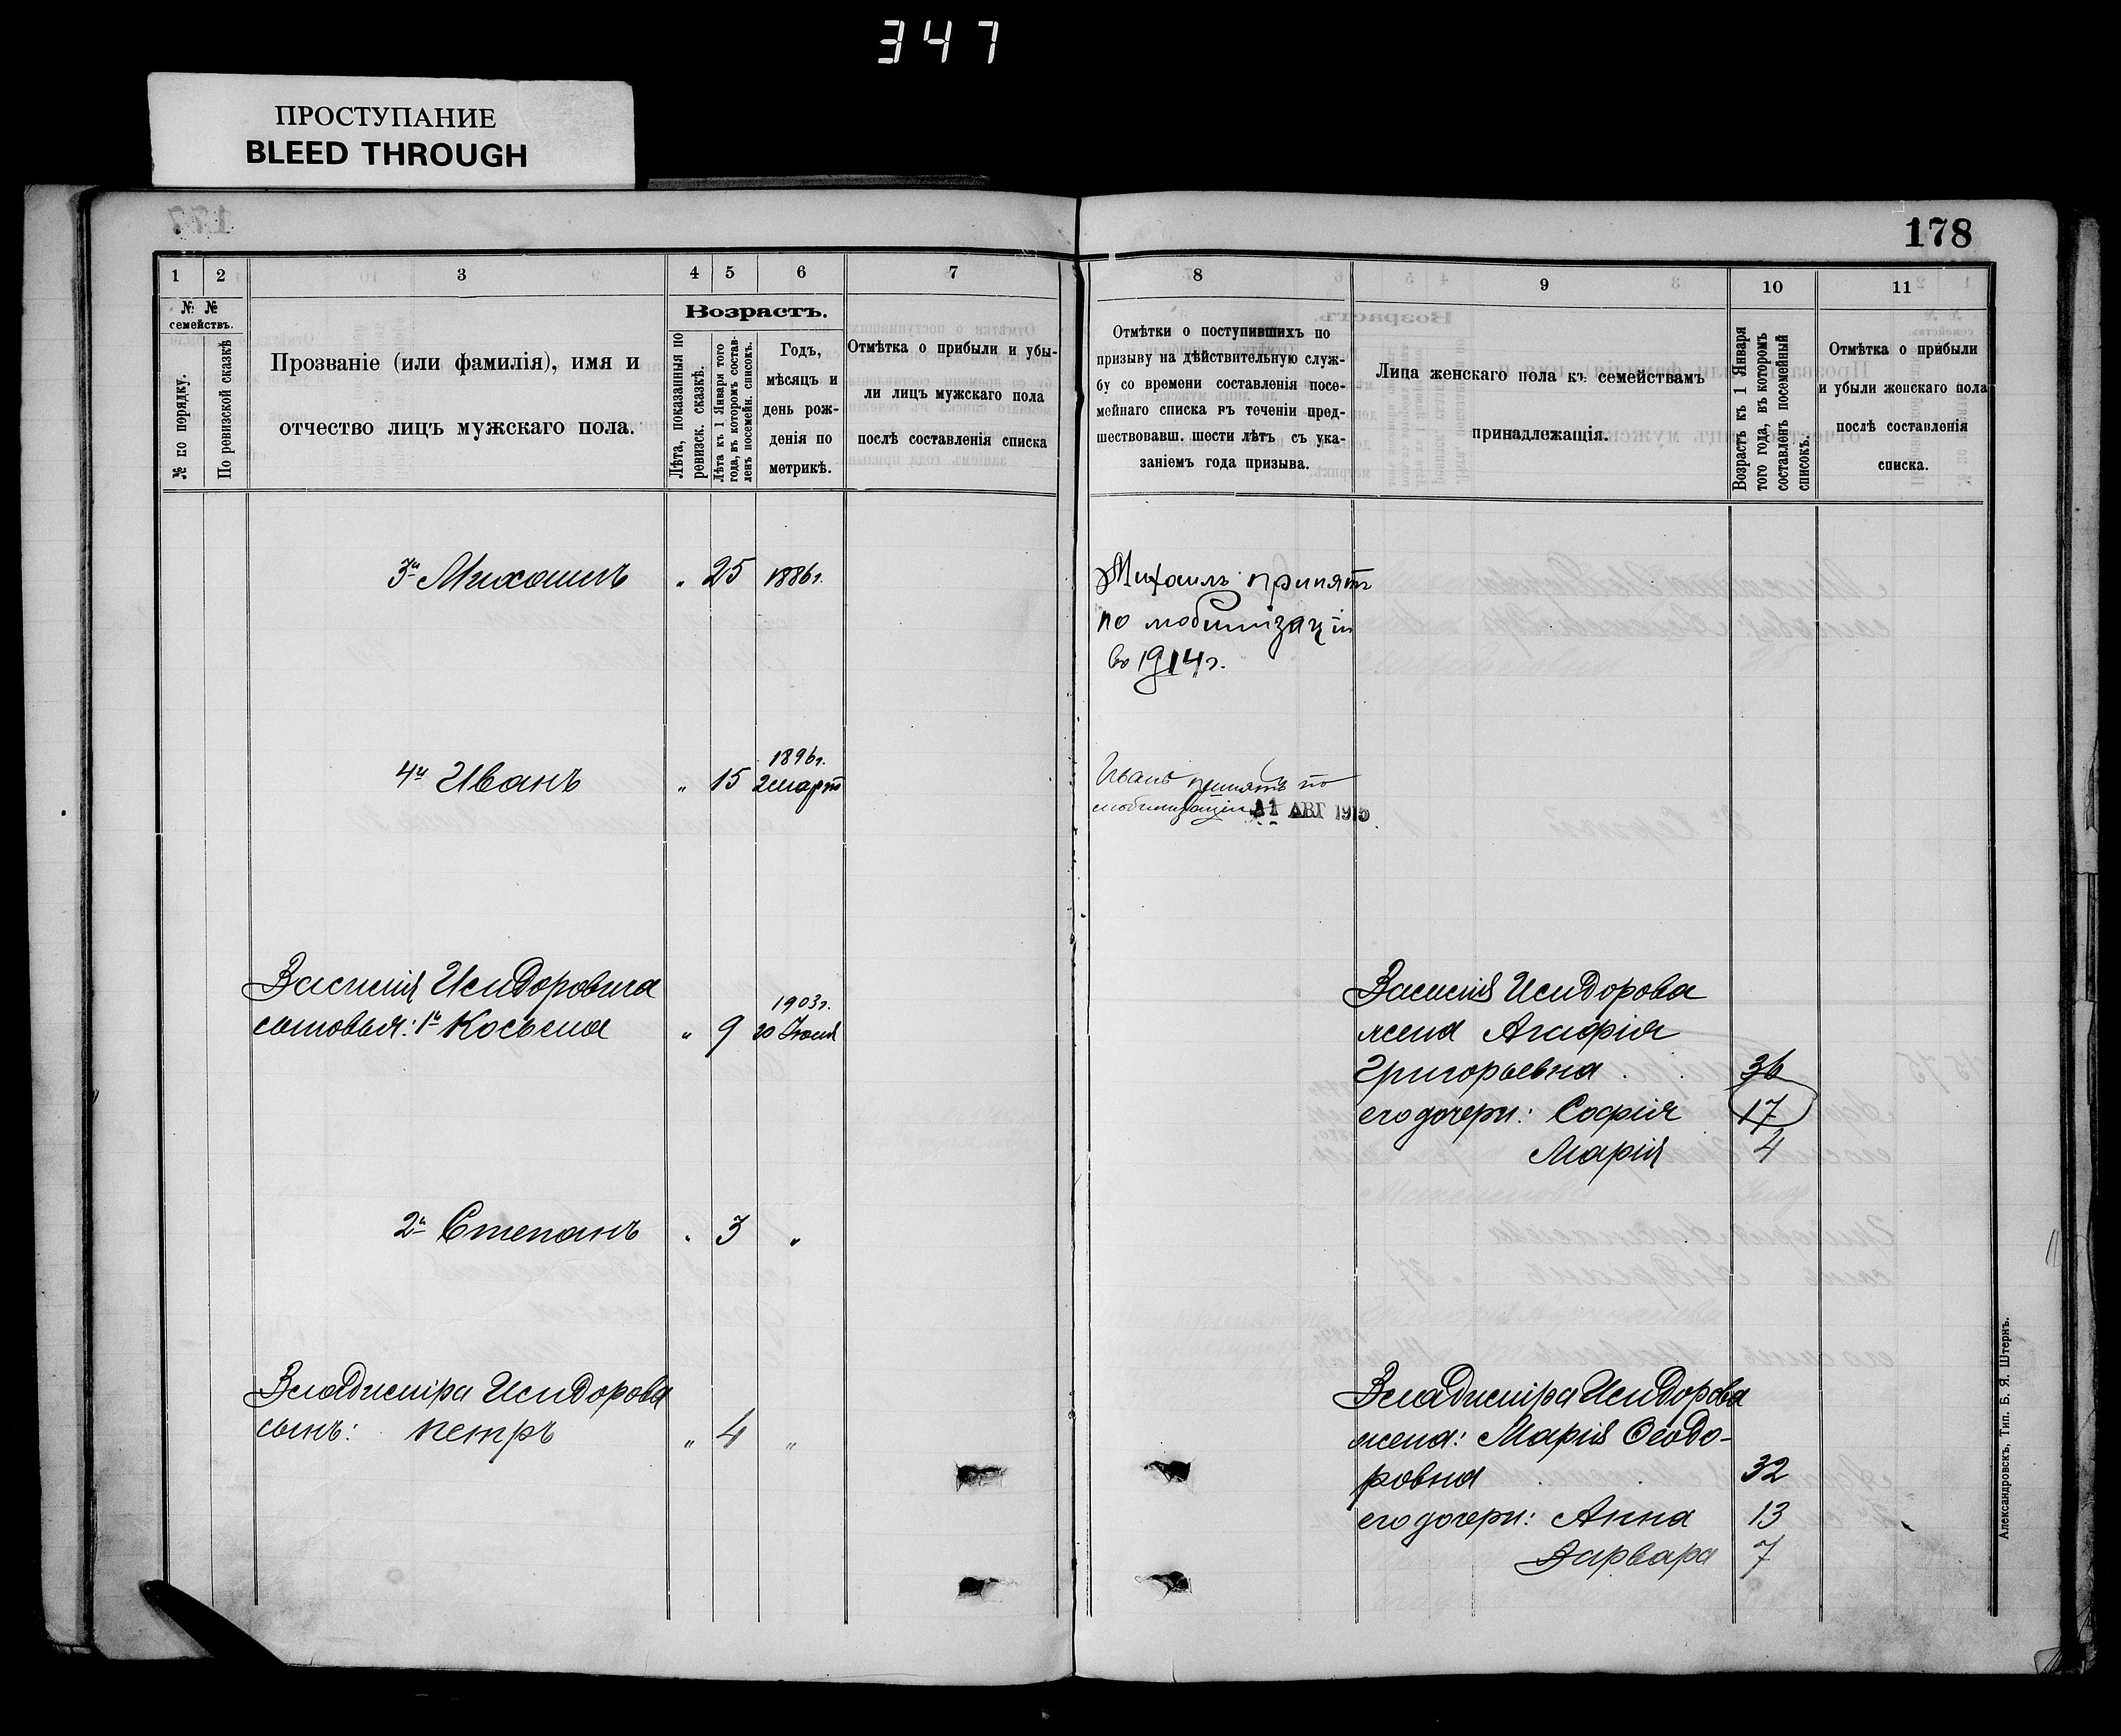 347
ПРОСТУПАНИЕ
BLEED THROUGH
178
1 2 3 4 5 6 7
№ №
семействъ.
№ по порядку.
По ревизской сказкѣ
Прозваніе (или фамилія), имя и
отчество лицъ мужскаго пола.
Возрастъ.
Лѣта, показанныя по
ревизск. сказкѣ.
Лѣта къ 1 Января того
года, въ которомъ состав-
ленъ посемейн. списокъ.
Годъ,
мѣсяцъ и
день рож-
денія по
метрикѣ.
Отмѣтка о прибыли и убы-
ли лицъ мужскаго пола
послѣ составленія списка
3й Михаилъ " 25 1886г.
1896г.
4й Иванъ " 15 2 март
Василія Исидоровича
1903г.
сыновья: 1й Косьма " 9 30
2й Степанъ " 3 "
Владиміра Исидорова
сынъ: Петръ " 4 "
8 9 10 11
Отмѣтки о поступившихъ по
призыву на дѣйствительную служ-
бу со времени составленія посе-
мейнаго списка въ теченіи пред-
шествовавш. шести лѣтъ съ ука-
заніемъ года призыва.
Лица женскаго пола къ семействамъ
принадлежащія.
Возрастъ къ 1 Января
того года, въ которомъ
составленъ посемейный
списокъ.
Отмѣтка о прибыли
и убыли женскаго пола
послѣ составленія
списка.
Михаилъ принят
по мобилизаціи
въ 1914г.
Иванъ принятъ по
мобилизаціи АВГ 1915
Василія Исидорова
жена Агафія
Григорьевна 36
его дочери: Софія 17
Марія 4
Владиміра Исидорова
жена: Марія Ѳеодо-
ровна 32
его дочери: Анна 13
Варвара 7
Александровскъ, Тип. Б. Я. Штернъ.